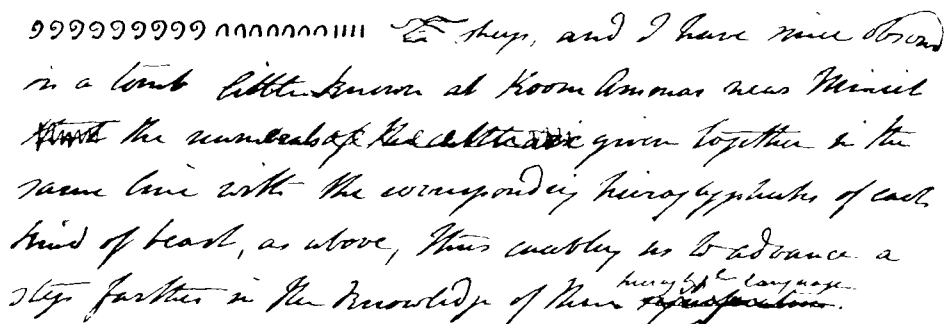 𓍢𓍢𓍢𓍢𓍢𓍢𓍢𓍢𓍢𓎆𓎆𓎆𓎆𓎆𓎆𓎆𓏺𓏺𓏺𓏺 sheep, and I have since observd
in a tomb little known at Koom near Minieh
the numerals of the cattle given together in the
same line with the corresponding hieroglyphics of each
kind of beast, as above, thus enabling us to advance a
step farther in the knowledge of their language.